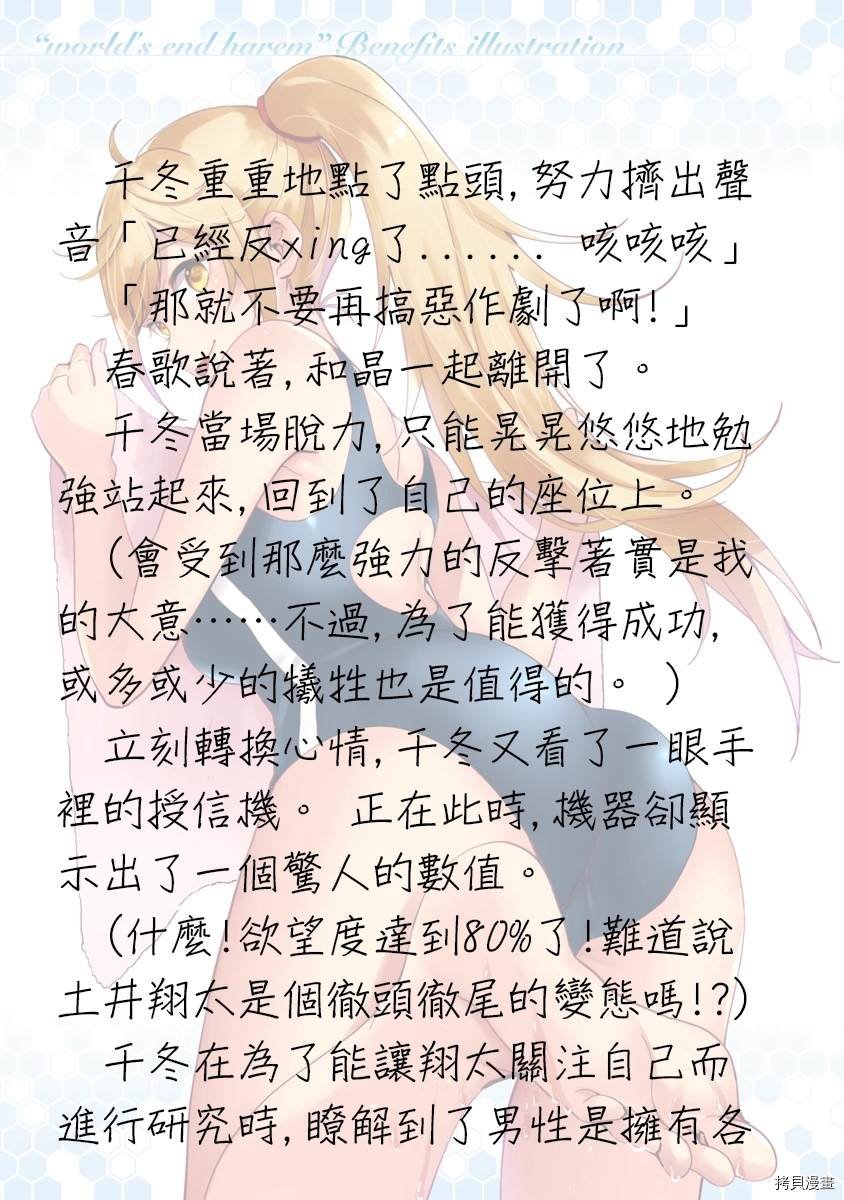 “world's end harem” Benefits illustration
千冬重重地點了點頭,努力擠出聲
音「已經反xing了...... 咳咳咳」
「那就不要再搞惡作劇了啊!」
春歌說著,和晶一起離開了。
千冬當場脫力,只能晃晃悠悠地勉
強站起來,回到了自己的座位上。
(會受到那麼強力的反擊著實是我
的大意……不過,為了能獲得成功,
或多或少的犧牲也是值得的。 )
立刻轉換心情,千冬又看了一眼手
裡的授信機。 正在此時,機器卻顯
示出了一個驚人的數值。
(什麼!欲望度達到80%了!難道說
土井翔太是個徹頭徹尾的變態嗎!?)
千冬在為了能讓翔太關注自己而
進行研究時,瞭解到了男性是擁有各
拷貝漫畫